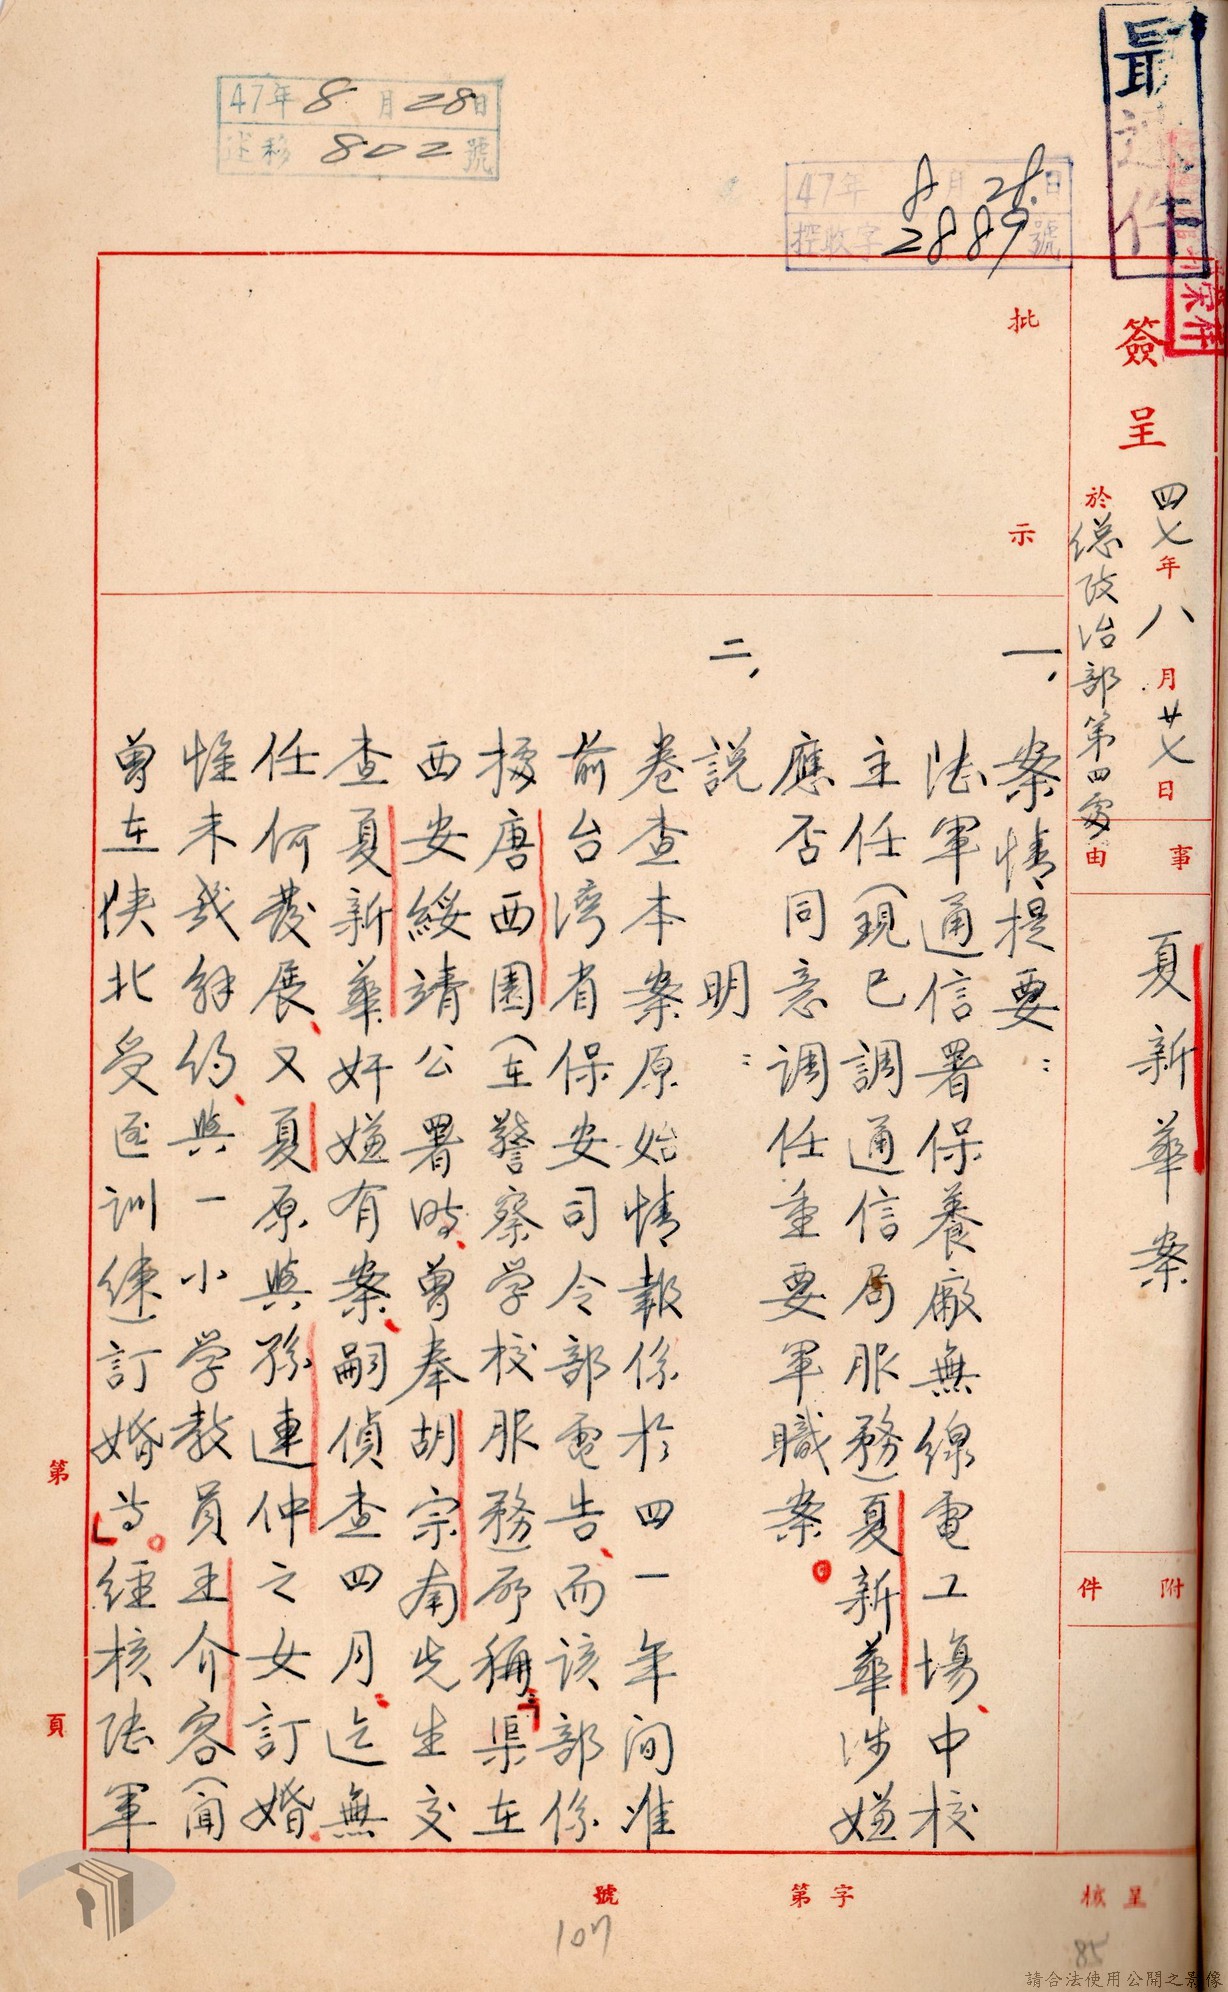 最速件
47年8月28日
802號
47年8月28日
控收字2889號
簽呈
四七年八月廿七日
於總政治部第四處
事由
夏新華案
附件
批示
一、案情提要：
陸軍通信署保養廠無線電工場、中校
主任（現已調通信局服務）夏新華涉嫌
應否同意調任重要軍職案。
二、說明：
卷查本案原始情報係於四一年間准
前台灣省保安司令部電告、而該部係
據唐西園（在警察学校服務）所稱：「渠在
西安綏靖公署時、曾奉胡宗南先生交
查夏新華奸嫌有案、嗣偵查四月、迄無
任何發展、又夏原與孫連仲之女訂婚、
惟未幾解約、與一小学教員王介容（聞
曾在陝北受匪訓練）訂婚」等。經核陸軍
第 頁
呈核
字第 號
107
85
請合法使用公開之影像